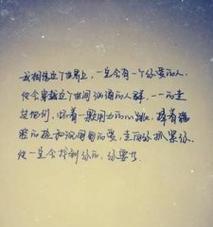 我相信这个世界上，一定会有一个你爱的人，
他会穿越这个世间汹涌的人群，一一的走
过他们，怀着一颗用力的心跳，捧着满
腔的热和沉甸甸的爱，走向你，抓紧你。
他一定会找到你的，你要等。